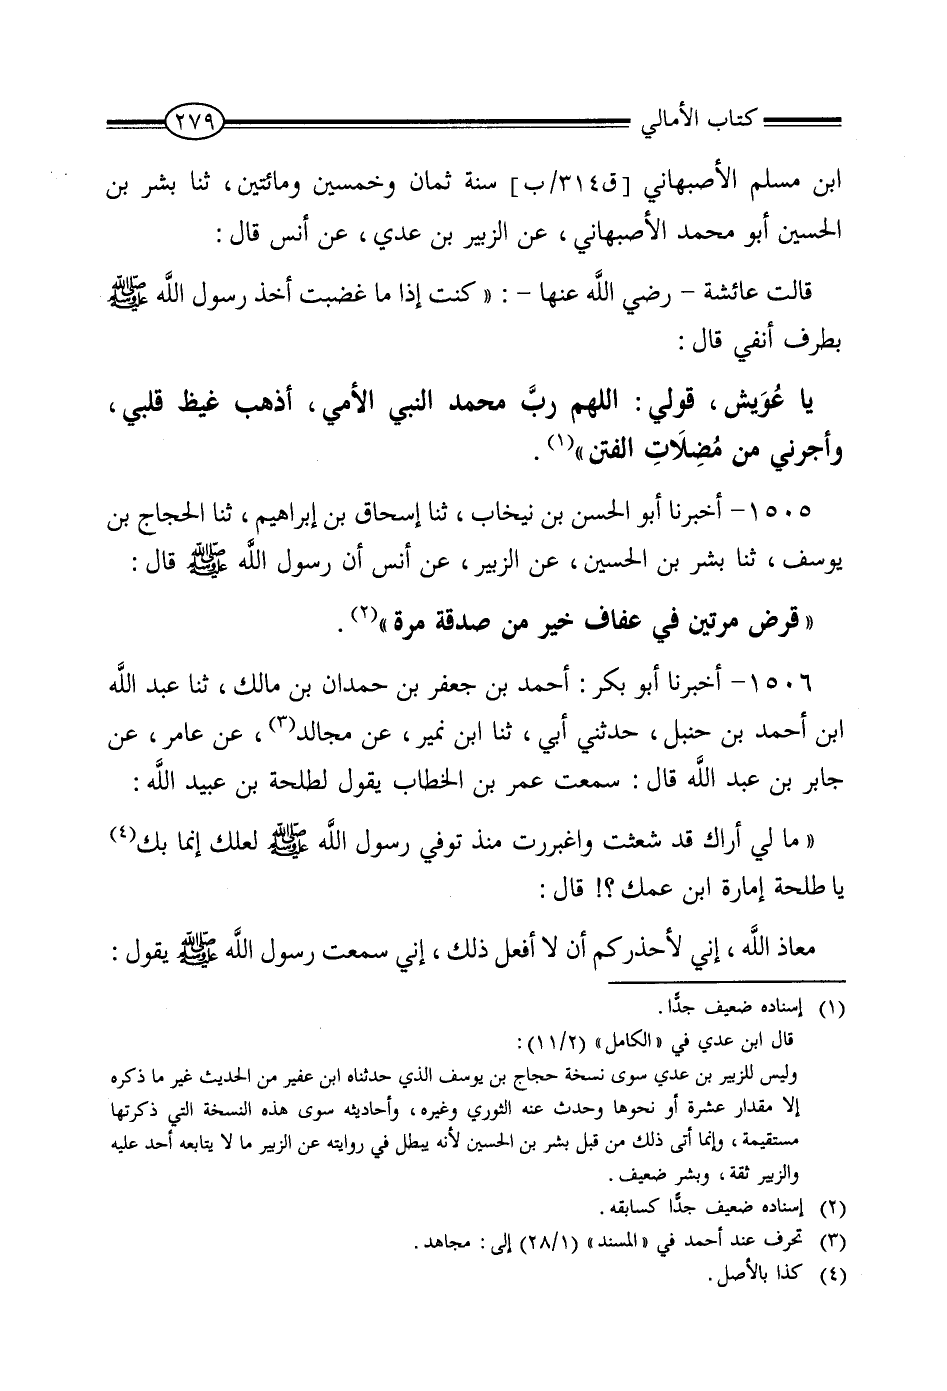 كتاب الأمالي ٢٧٩
ابن مسلم الأصبهاني [ق٣١٤/ب] سنة ثمان وخمسين ومائتين، ثنا بشر بن
الحسين أبو محمد الأصبهاني، عن الزبير بن عدي، عن أنس قال:
قالت عائشة - رضي اللَّه عنها - : « كنت إذا ما غضبت أخذ رسول اللَّه ﷺ
بطرف أنفي قال:
يا عُوَيش، قولي: اللهم ربَّ محمد النبي الأمي، أذهب غيظ قلبي،
وأجرني من مُضِلَاتِ الفتن»(١).
١٥٠٥- أخبرنا أبو الحسن بن نيخاب، ثنا إسحاق بن إبراهيم، ثنا الحجاج بن
يوسف، ثنا بشر بن الحسين، عن الزبير، عن أنس أن رسول اللَّه ﷺ قال:
« قرض مرتين في عفاف خير من صدقة مرة»(٢).
١٥٠٦- أخبرنا أبو بكر: أحمد بن جعفر بن حمدان بن مالك، ثنا عبد اللَّه
ابن أحمد بن حنبل، حدثني أبي، ثنا ابن نمير، عن مجالد(٣)، عن عامر، عن
جابر بن عبد اللَّه قال: سمعت عمر بن الخطاب يقول لطلحة بن عبيد اللَّه:
« ما لي أراك قد شعثت واغبررت منذ توفي رسول اللَّه ﷺ لعلك إنما بك(٤)
يا طلحة إمارة ابن عمك؟! قال:
معاذ اللَّه، إني لأحذركم أن لا أفعل ذلك، إني سمعت رسول اللَّه ﷺ يقول:
(١) إسناده ضعيف جدًّا.
قال ابن عدي في «الكامل» (١١/٢):
وليس للزبير بن عدي سوى نسخة حجاج بن يوسف الذي حدثناه ابن عفير من الحديث غير ما ذكره
إلا مقدار عشرة أو نحوها وحدث عنه الثوري وغيره، وأحاديثه سوى هذه النسخة التي ذكرتها
مستقيمة، وإنما أتى ذلك من قبل بشر بن الحسين لأنه يبطل في روايته عن الزبير ما لا يتابعه أحد عليه
والزبير ثقة، وبشر ضعيف.
(٢) إسناده ضعيف جدًّا كسابقه.
(٣) تحرف عند أحمد في «المسند» (٢٨/١) إلى: مجاهد.
(٤) كذا بالأصل.